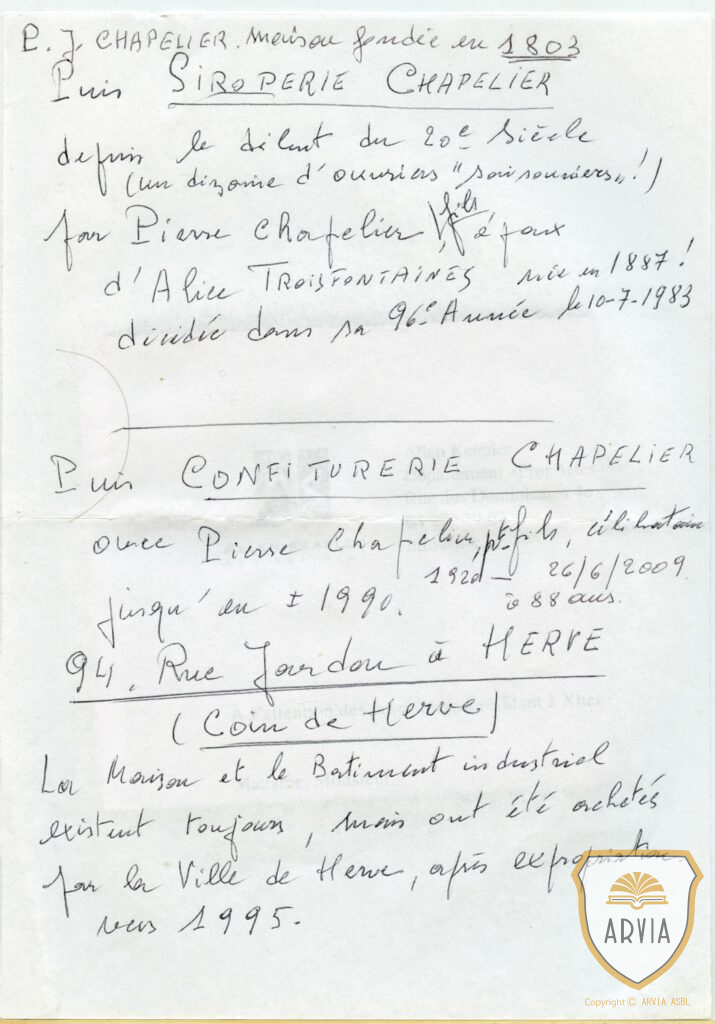 P. J. CHAPELIER. Maison fondée en 1803
Puis SIROPERIE CHAPELIER
depuis le début du 20e Siècle
(un dizaine d'ouvriers "saisonniers"!)
par Pierre Chapelier, fils époux
d'Alice TROISFONTAINES née en 1887!
décédée dans sa 96e Année le 10-7-1983
Puis CONFITURERIE CHAPELIER
avec Pierre Chapelier, pt-fils, célibataire
1920 — 26/6/2009
jusqu'en ± 1990.
à 88 ans.
94, Rue Jardon à HERVE
(Coin de Herve)
La Maison et le Batiment industriel
existent toujours, mais ont été achetés
par la Ville de Herve, après expropriation
vers 1995.
ARVIA
Copyright © ARVIA ASBL